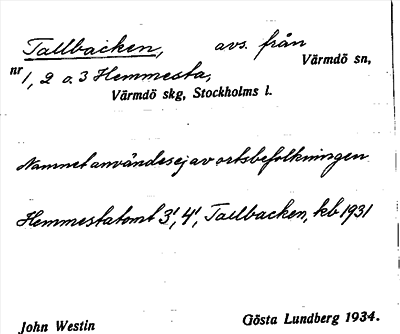 Tallbacken, avs. från
Värmdö sn,
nr 1, 2 o. 3 Hemmesta,
Värmdö skg, Stockholms l.
Namnet användes ej av ortsbefolkningen
Hemmestatomt 3¹, 4¹, Tallbacken, kb 1931
John Westin
Gösta Lundberg 1934.